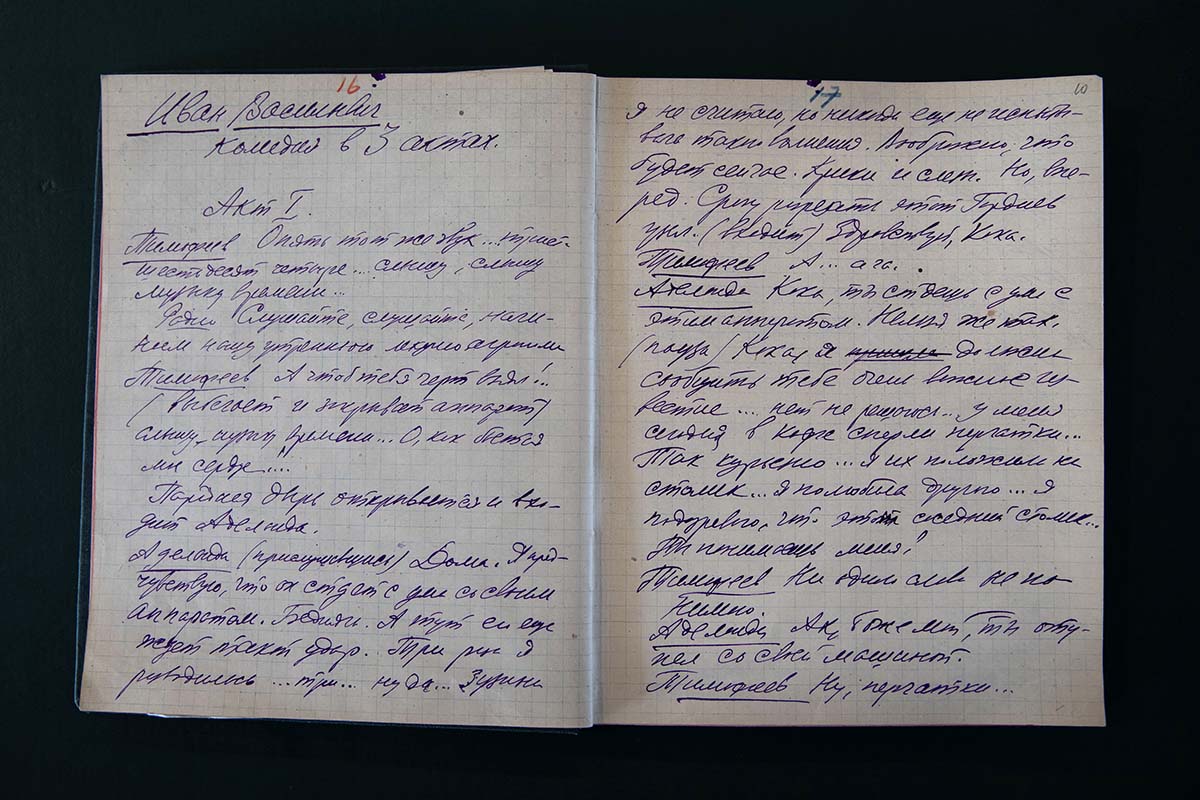 16
Иван Васильевич
Комедия в 3 актах.
Акт I.
Тимофеев Опять тот же звук... триста
шестьдесят четыре... слышу, слышу
музыку времени...
Радио Слушайте, слушайте, начи-
наем нашу утреннюю лекцию
Тимофеев А чтоб тебя черт взял!..
(выбегает и закрывает аппарат)
слышу музыку времени... О, как бьется
мое сердце...
Парадная дверь открывается и вхо-
дит Аделаида.
Аделаида (прислушавшись) Дома. Я пред-
чувствую, что он сойдет с ума со своим
аппаратом. Бедняга. А тут его еще
ждет такой удар. Три раза я
разводилась ... три... ну да... Зузина
17
10
я не считаю, но никогда еще не испыты-
вала такого волнения. Воображаю, что
будет сейчас. Крики и слезы. Но, впе-
ред. Сразу разрезать этот Гордиев
узел. (входит) Здравствуй, Кока.
Тимофеев А... ага.
Аделаида Кока, ты сойдешь с ума с
этим аппаратом. Нельзя же так.
(пауза) Кока, я должна
сообщить тебе очень важное из-
вестие ... нет не решаюсь... у меня
сегодня в кафе сперли перчатки...
Так курьезно... я их положила на
столик... я полюбила другого... я
подозреваю, что это соседний столик...
Ты понимаешь меня?
Тимофеев Ни одного слова не по-
нимаю.
Аделаида Ах, боже мой, ты оту-
пел со своей машиной.
Тимофеев Ну, перчатки...